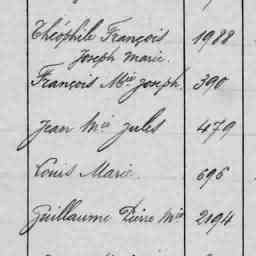 Théophile François 1988
Joseph Marie.
François Mie Joseph. 390
Jean Mie Jules 479
Louis Marie. 696
Guillaume Pierre Mie 2194